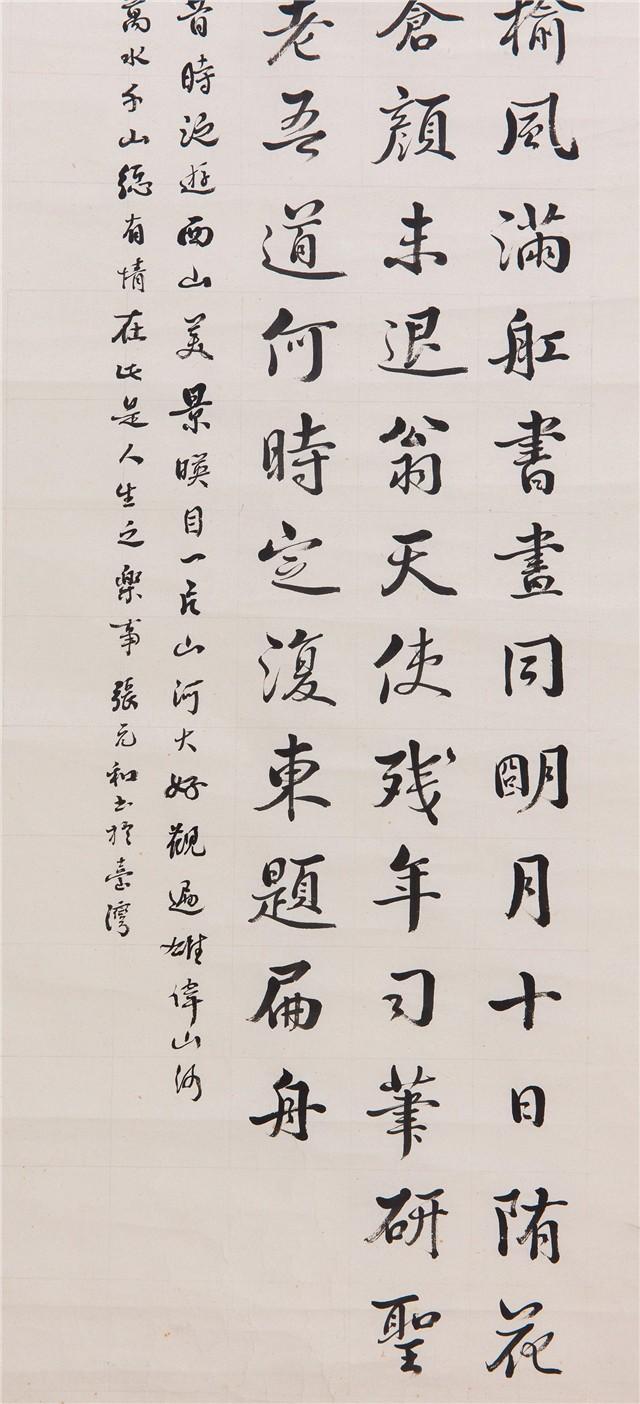 榆風滿舡書畫同朙月十日陏花
倉顏未退翁天使残年司筆研聖
老吾道何時定復東題扁舟
昔時泛遊西山美景暎目一片山河大好觀遍雄偉山河
萬水千山總有情在此是人生之樂事張元和书於臺灣